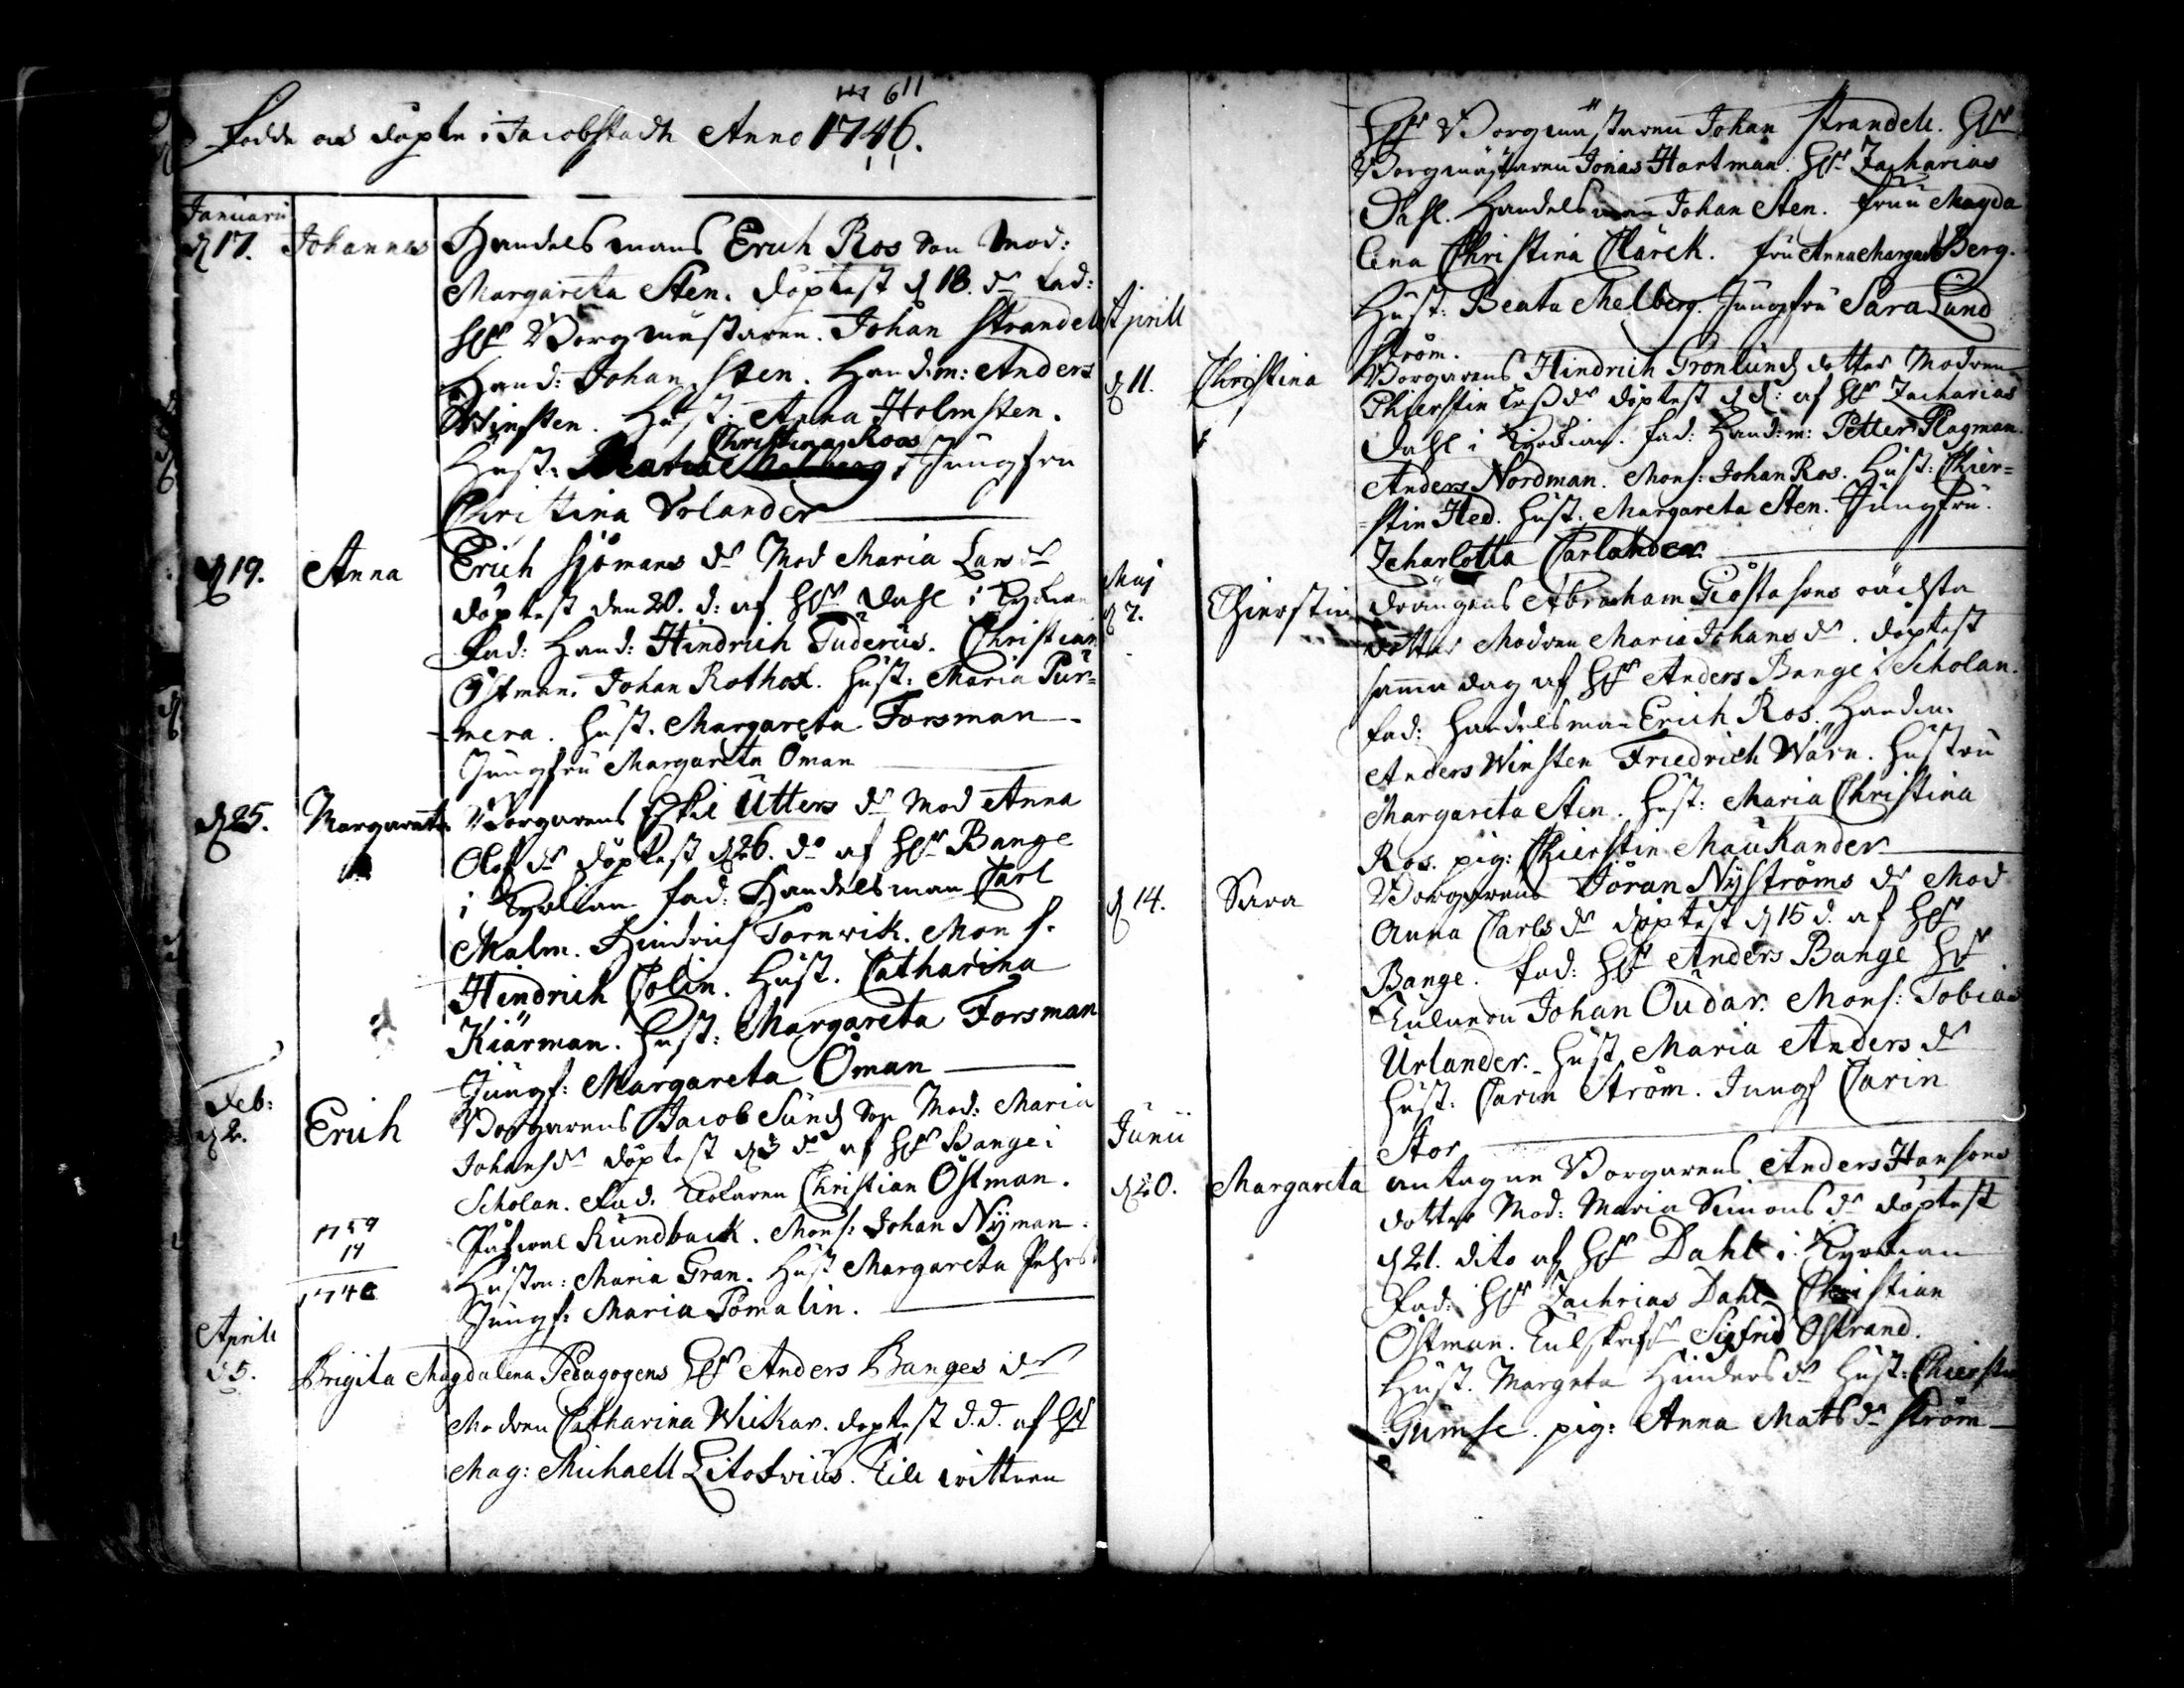 611
Födde och döpte i Jacobstadh Anno 1746.
Januarii
d 17. Johannes Handelsmans Erich Ros son Mod:
Margareta Sten. döptest d 18. do fad:
Hr Borgmästaren. Johan Strandell
Hand: Johan Sten. Hand:m: Anders
Winsten. Hust: Anna Holmsten.
Christina Roos
Hust: Jungfru
Christina Volander
d 19. Anna Erich Sjömans dr Mod Maria Larsdr
döptest den 20. d: af Hr Dahl i Kyrkian
Fad: Hand: Hindrich Tuderus. Christian
Östman. Johan Rothof. Hust: Maria Pur=
mera. Hust. Margareta Forsman
Jungfru Margareta Öman
d 25. Margareta Borgarens Eskil Utters dr Mod Anna
Olofsdr döptest d 26. do af Hr Bange
i Kyrkian fad: Handelsman Carl
Malm. Hindrich Tornwik. Mons.
Hindrich Colin. Hust. Catharina
Kiärman. Hust: Margareta Forsman
Jungf: Margareta Öman
Feb:
d 2. Erich Borgarens Jacob Sund son Mod: Maria
Johansdr döptest d 3 do af Hr Bange i
Scholan. Fad. Christian Östman.
Rundback. Mons: Johan Nÿman.
Hustru: Maria Gran. Hust Margareta Pehrsd
Jungf: Maria Pomalin.
1759
19
1740
Aprill
d 5. Brigita Magdalena Pedagogens Hr Anders Banges dr
Modren Catharina Wickar. döptest d.d. af Hr
Mag: Michaell Litovius. Till wittnen
Hr Borgmästaren Johan Strandell. Hr
Borgmästaren Jonas Hartman. Hr Zacharias
Dahl. Handelsman Johan Sten. fruu Magda
lena Christina Clarck. fru Anna Margar Berg.
Hust: Beata Melberg. Jungfru Sara Lund
ström.
Aprill
d 11. Christina Borgarens Hindrich Grönlunds dotter Modren
Chierstin döptest d d: af Hr Zacharias
Dahl i Kyrkian. fad: Hand:m: Petter Plagman.
Anders Nordman. Mons: Johan Ros. Hust: Chier=
=stin Hed. Hust. Margareta Sten. Jungfru.
Zcharlotta Carlander.
Maj
d 7. Chierstin Drängens Abraham Giöstasons oächta
dotter Modren Maria Johansdr. döptest
samma dag af Hr Anders Bange i Scholan.
fad: Handelsman Erich Ros. Handm.
Anders Winsten Friedrich Wärn. Hustru
Margareta Sten. Hust: Maria Christina
Ros. pig: Chierstin Maukander
d 14. Sara Borgarens Jöran Nÿströms dr Mod
Anna Carlsdr döptest d 15 d. af Hr
Bange. fad: Hr Anders Bange Hr
Johan Oudar. Mons: Tobias
Urlander. Hust Maria Andersdr
Hust: Carin Ström. Jungf Carin
Stor
Junii
d 20. Margareta antagne Borgarens Anders Hansons
dotter Mod: Maria Simonsdr döptest
d 21. dito af Hr Dahl i Kyrkian
Fad: Hr Zachrias Dahl Christian
Östman. Sigfrid Östrand.
Hust. Margreta Hindersdr Hust: Chierstin
Gumse. pig: Anna Matsdr Ström